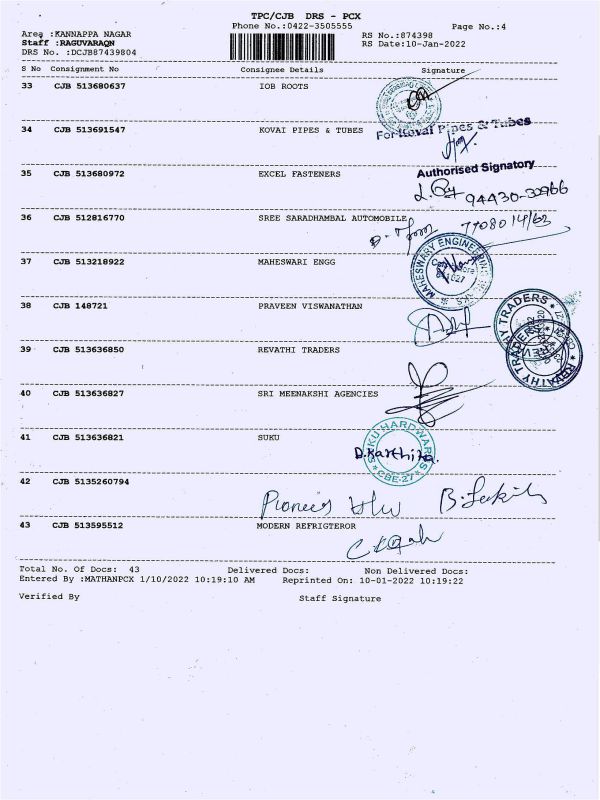 TPC/CJB DRS - PCX
Phone No.:0422-3505555
Page No.:4
Area :KANNAPPA NAGAR
Staff :RAGUVARAQN
DRS No. :DCJB87439804
RS No.:874398
RS Date:10-Jan-2022
S No Consignment No Consignee Details Signature
33 CJB 513680637 IOB ROOTS
34 CJB 513691547 KOVAI PIPES & TUBES
For Kovai Pipes & Tubes
Authorised Signatory
35 CJB 513680972 EXCEL FASTENERS
94430-30966
36 CJB 512816770 SREE SARADHAMBAL AUTOMOBILE
7708014163
37 CJB 513218922 MAHESWARI ENGG
MAHESWARY ENGINEERING
38 CJB 148721 PRAVEEN VISWANATHAN
REVATHY TRADERS
39 CJB 513636850 REVATHI TRADERS
REVATHY TRADERS
40 CJB 513636827 SRI MEENAKSHI AGENCIES
41 CJB 513636821 SUKU
SUKU HARDWARES
D.Karthika.
CBE-27
42 CJB 5135260794
43 CJB 513595512 MODERN REFRIGTEROR
Total No. Of Docs: 43 Delivered Docs: Non Delivered Docs:
Entered By :MATHANPCX 1/10/2022 10:19:10 AM Reprinted On: 10-01-2022 10:19:22
Verified By Staff Signature